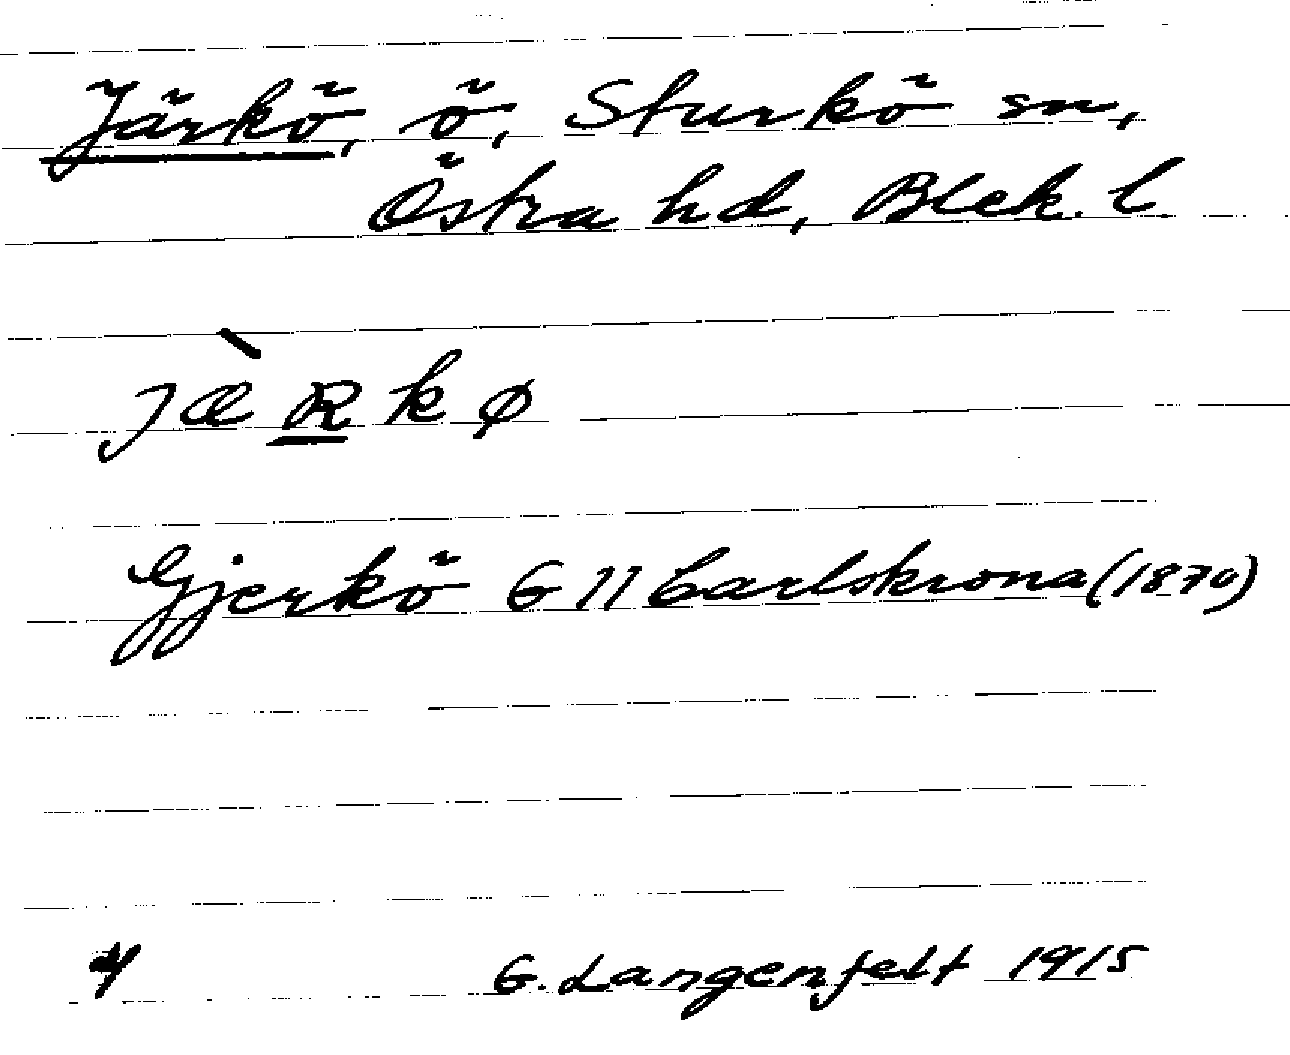 Järkö, ö, Sturkö sn,
Östra hd, Blek. l
jæ̀Rkø
Gjerkö G 11 Carlskrona (1870)
4 G. Langenfelt 1915